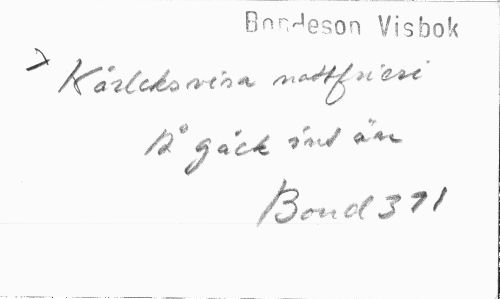 Bondeson Visbok
Kärleksvisa nattfrieri
Å gåck int än
Bond 391